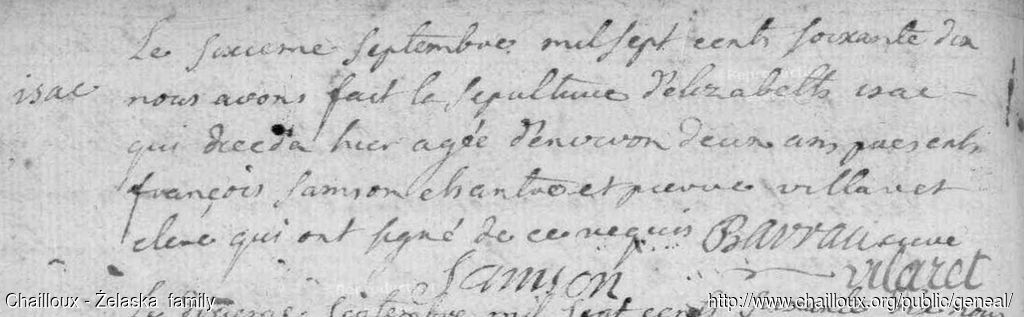 Le sixieme septembre mil sept cents soixante dix
isac
nous avons fait la sepulture d'elizabeth isac
qui deceda hier agée d'environ deux ans presents
françois samson chantre et pierre villaret
clerc qui ont signé de ce requis Barrau cure
Samson vilaret
Le
septembre mil sept cents soixante dix nous
Chailloux - Żelaska family
http://www.chailloux.org/public/geneal/